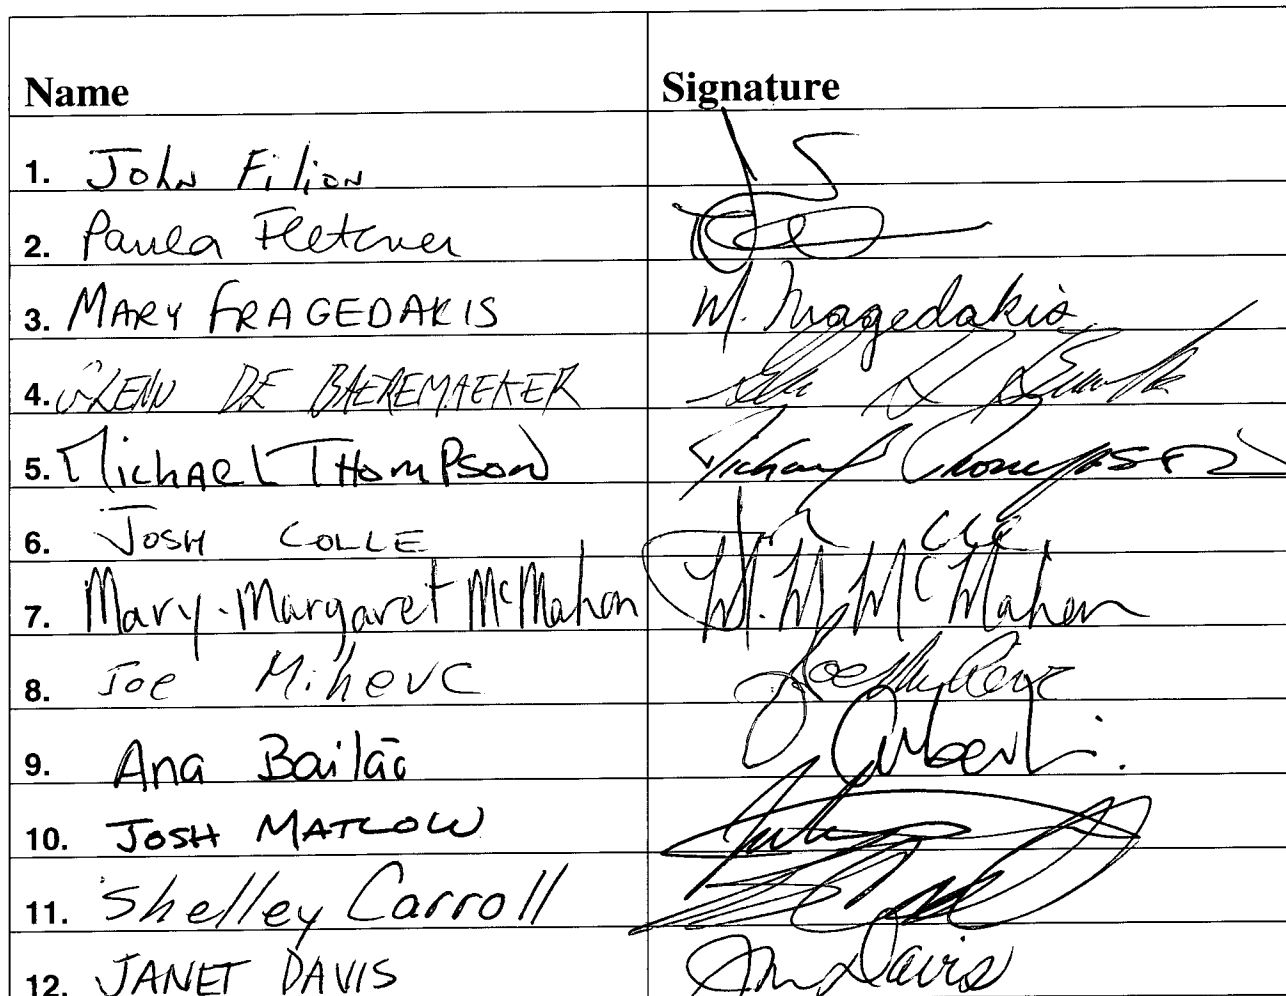 Name Signature
1. John Filion
2. Paula Fletcher
3. MARY FRAGEDAKIS M. Fragedakis
4. GLENN DE BAEREMAEKER
5. Michael Thompson Michael Thompson
6. JOSH COLLE
7. Mary-Margaret McMahon M. M. McMahon
8. Joe Mihevc Joe Mihevc
9. Ana Bailão
10. JOSH MATLOW
11. Shelley Carroll
12. JANET DAVIS Davis